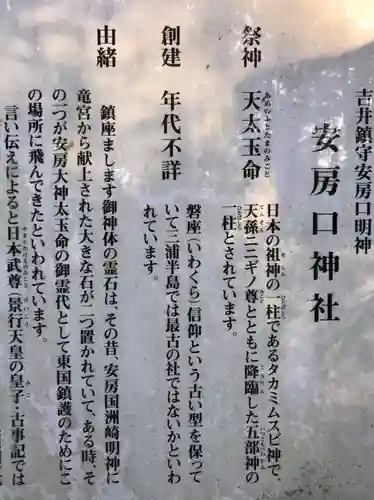 吉井鎮守安房口明神
安房口神社
祭神　天太玉命
あめのふとたまのみこと
日本の祖神の一柱であるタカミムスビ神で、
天孫ニニギノ尊とともに降臨した五部神の
一柱とされています。
創建　年代不詳
磐座(いわくら)信仰という古い型を保って
いて三浦半島では最古の社ではないかといわ
れています。
由緒
鎮座まします御神体の霊石は、その昔、安房国洲崎明神に
竜宮から献上された大きな石が二つ置かれていて、ある時、そ
の一つが安房大神太玉命の御霊代として東国鎮護のためにこ
の場所に飛んできたといわれています。
言い伝えによると日本武尊(景行天皇の皇子・古事記では